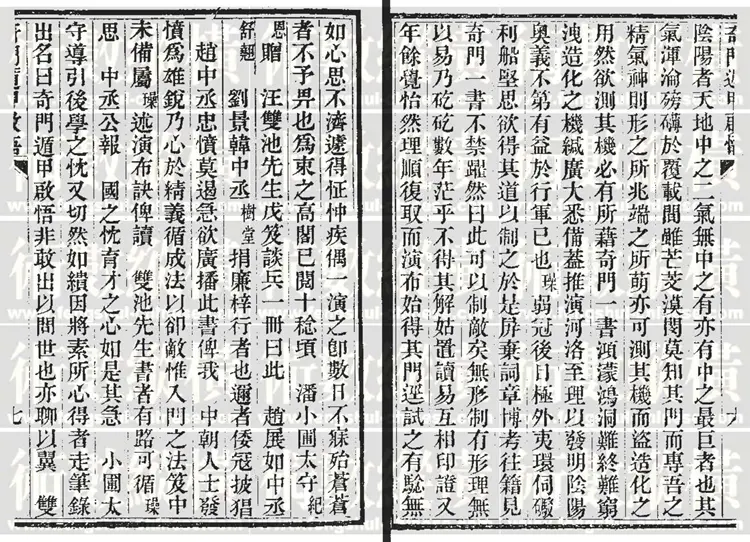 陰陽者天地中之二氣無中之有亦有中之最巨者也其
氣渾淪磅礡於覆載間雖芒芠漠閔莫知其門而專吾之
精氣神則形之所兆端之所萌亦可測其機而盜造化之
用然欲測其機必有所藉奇門一書鴻濛鴻洞難終難窮
洩造化之機緘廣大悉備蓋推演河洛至理以發明陰陽
奧義不第有益於行軍已也璪弱冠後目極外夷環伺礮
利船堅思欲得其道以制之於是屏棄詞章博考往籍見
奇門一書不禁躍然曰此可以制敵矣無形制有形理無
以易乃矻矻數年茫乎不得其解姑置讀易互相印證又
年餘覺怡然理順復取而演布始得其門逕試之有驗無
如心思不濟遽得怔忡疾偶一演之卽數日不寐殆蒼蒼
者不予畀也爲束之高閣已閱十稔頃 潘小圃太守紀
恩贈 汪雙池先生戊笈談兵一冊曰此 趙展如中丞
舒翹 劉景韓中丞樹堂捐廉梓行者也邇者倭寇披猖
趙中丞忠憤莫遏急欲廣播此書俾我 中朝人士發
憤爲雄銳乃心於精義循成法以卻敵惟入門之法笈中
未備屬璪述演布訣俾讀 雙池先生書者有路可循璪
思 中丞公報 國之忱育才之心如是其急 小圃太
守導引後學之忱又切然如繢因將素所心得者走筆錄
出名曰奇門遁甲啟悟非敢出以問世也亦聊以翼 雙
奇門遁甲啟悟
七